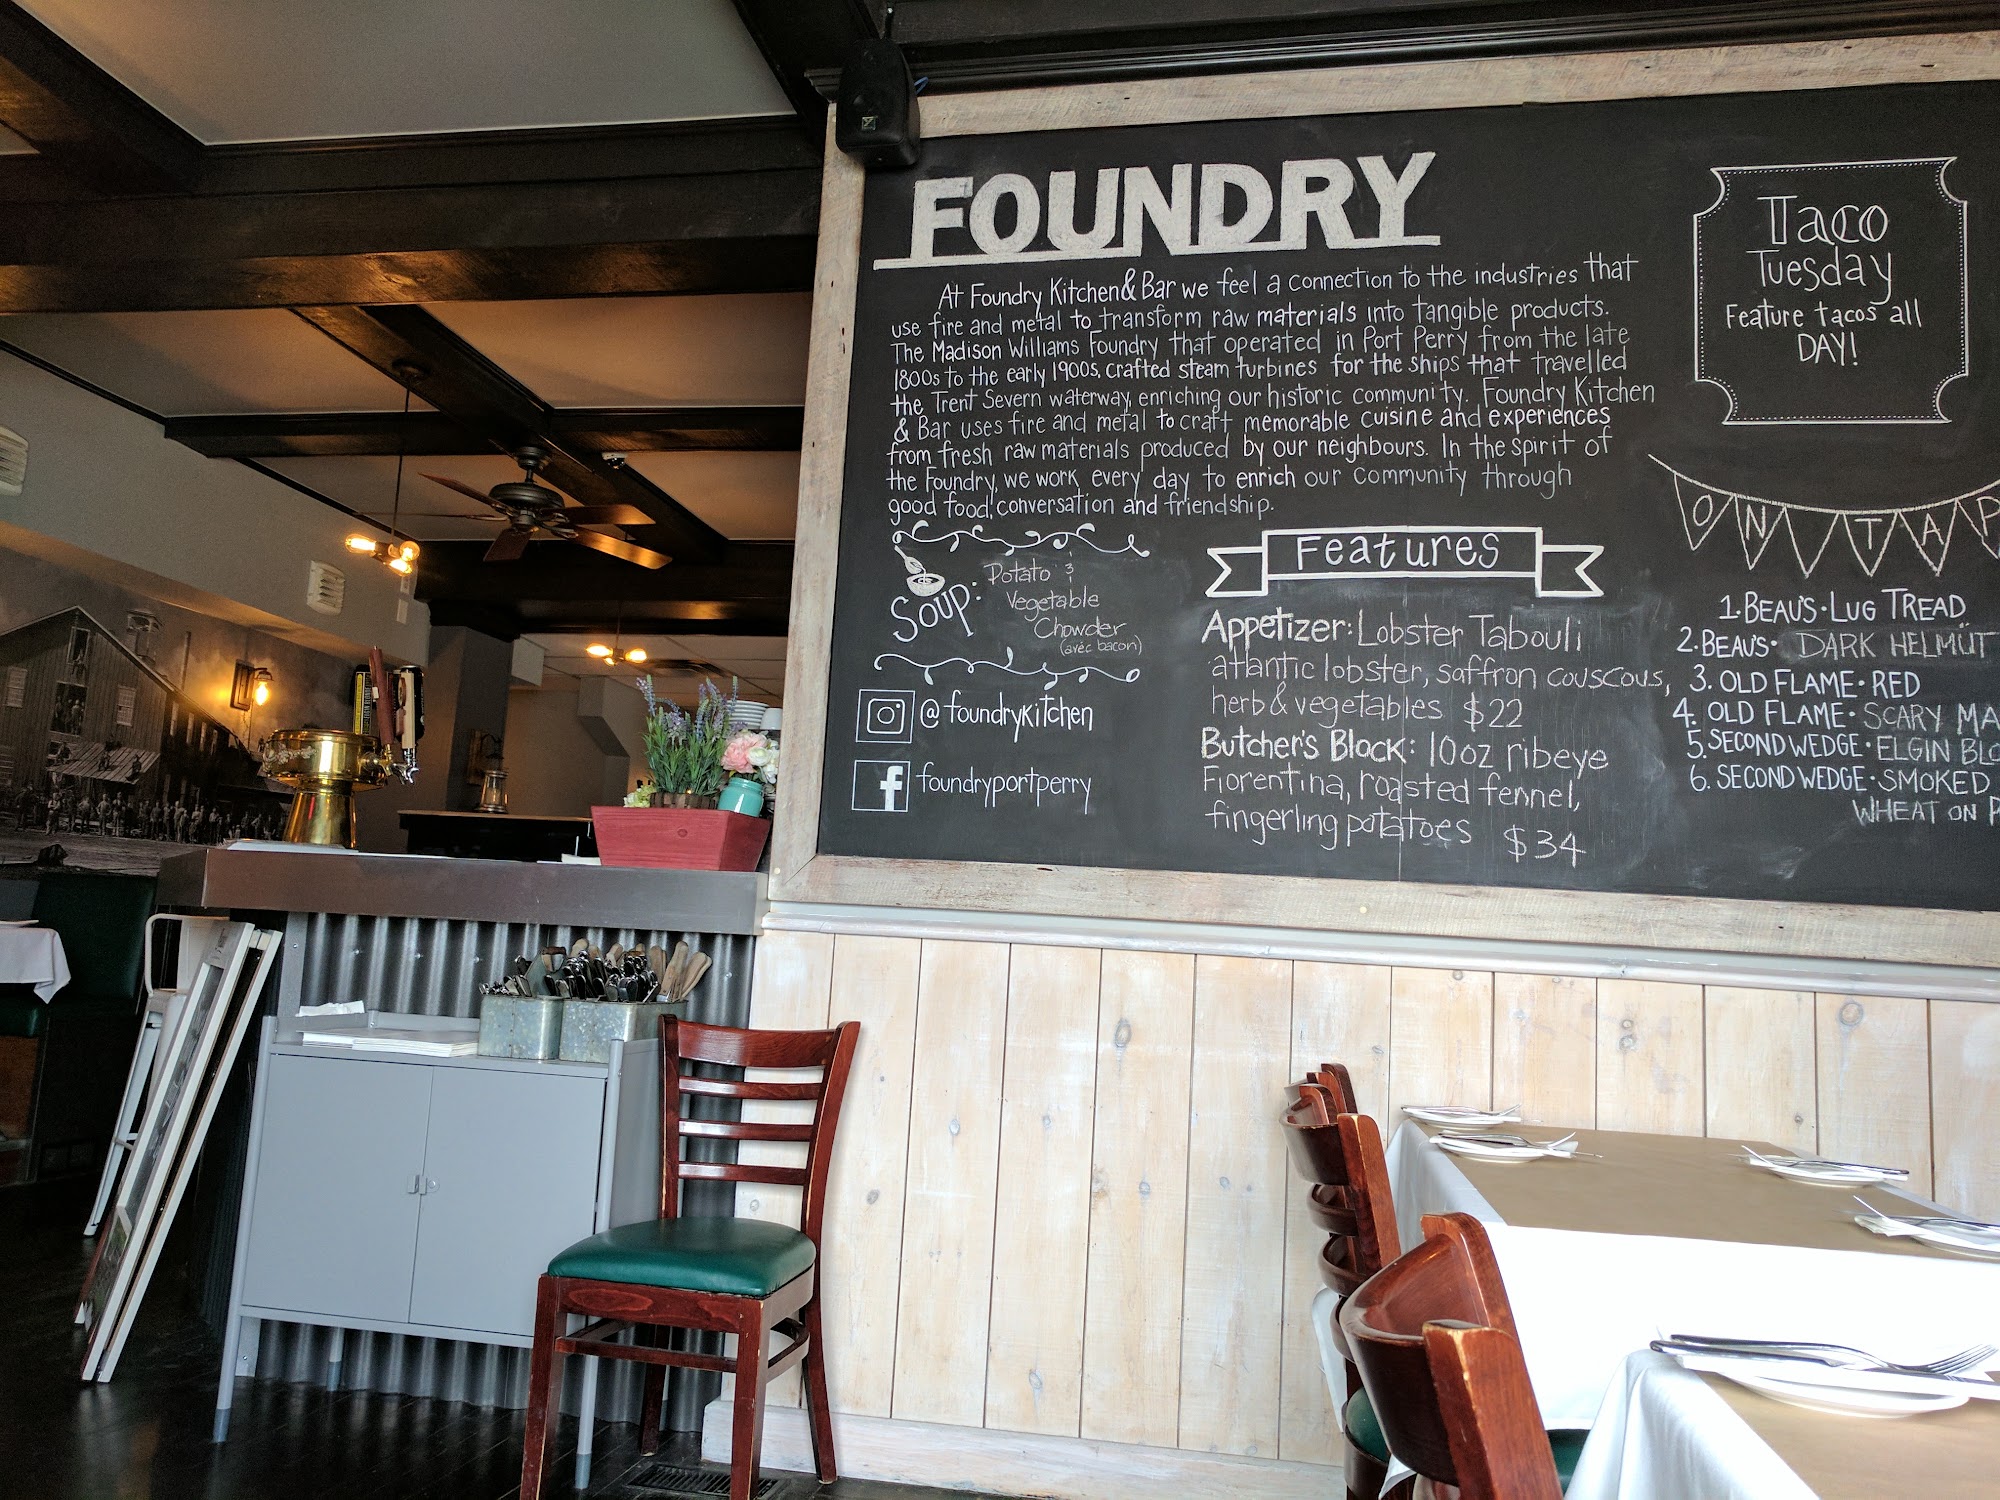 FOUNDRY
At Foundry Kitchen & Bar we feel a connection to the industries that
use fire and metal to transform raw materials into tangible products.
The Madison Williams Foundry that operated in Port Perry from the late
1800s to the early 1900s, crafted steam turbines for the ships that travelled
the Trent Severn waterway, enriching our historic community. Foundry Kitchen
& Bar uses fire and metal to craft memorable cuisine and experiences
from fresh raw materials produced by our neighbours. In the spirit of
the Foundry, we work every day to enrich our community through
good food, conversation and friendship.
Soup:
Potato &
Vegetable
Chowder
(avec bacon)
@foundrykitchen
f foundryportperry
Features
Appetizer: Lobster Tabouli
atlantic lobster, saffron couscous,
herb & vegetables $22
Butcher's Block: 10oz ribeye
Fiorentina, roasted fennel,
fingerling potatoes $34
Taco
Tuesday
Feature tacos all
DAY!
ON TAP
1. BEAU'S • LUG TREAD
2. BEAU'S • DARK HELMÜT
3. OLD FLAME • RED
4. OLD FLAME • SCARY MA
5. SECOND WEDGE • ELGIN BLO
6. SECOND WEDGE • SMOKED
WHEAT ON P